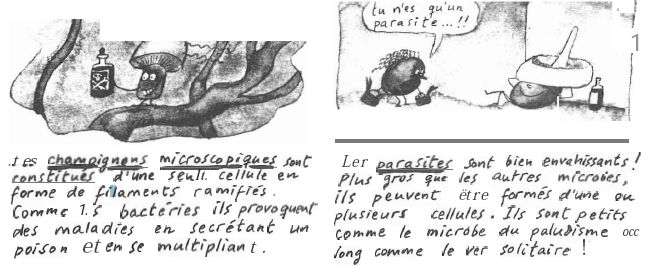 tu n'es qu'un
parasite...!!
1
Les champignons microscopiques sont
constitués d'une seule cellule en
forme de filaments ramifiés.
Comme les bactéries ils provoquent
des maladies en secrétant un
poison et en se multipliant.
Ler parasites sont bien envahissants!
Plus gros que les autres microbes,
ils peuvent être formés d'une ou
plusieurs cellules. Ils sont petits
comme le microbe du paludisme occ
long comme le ver solitaire!